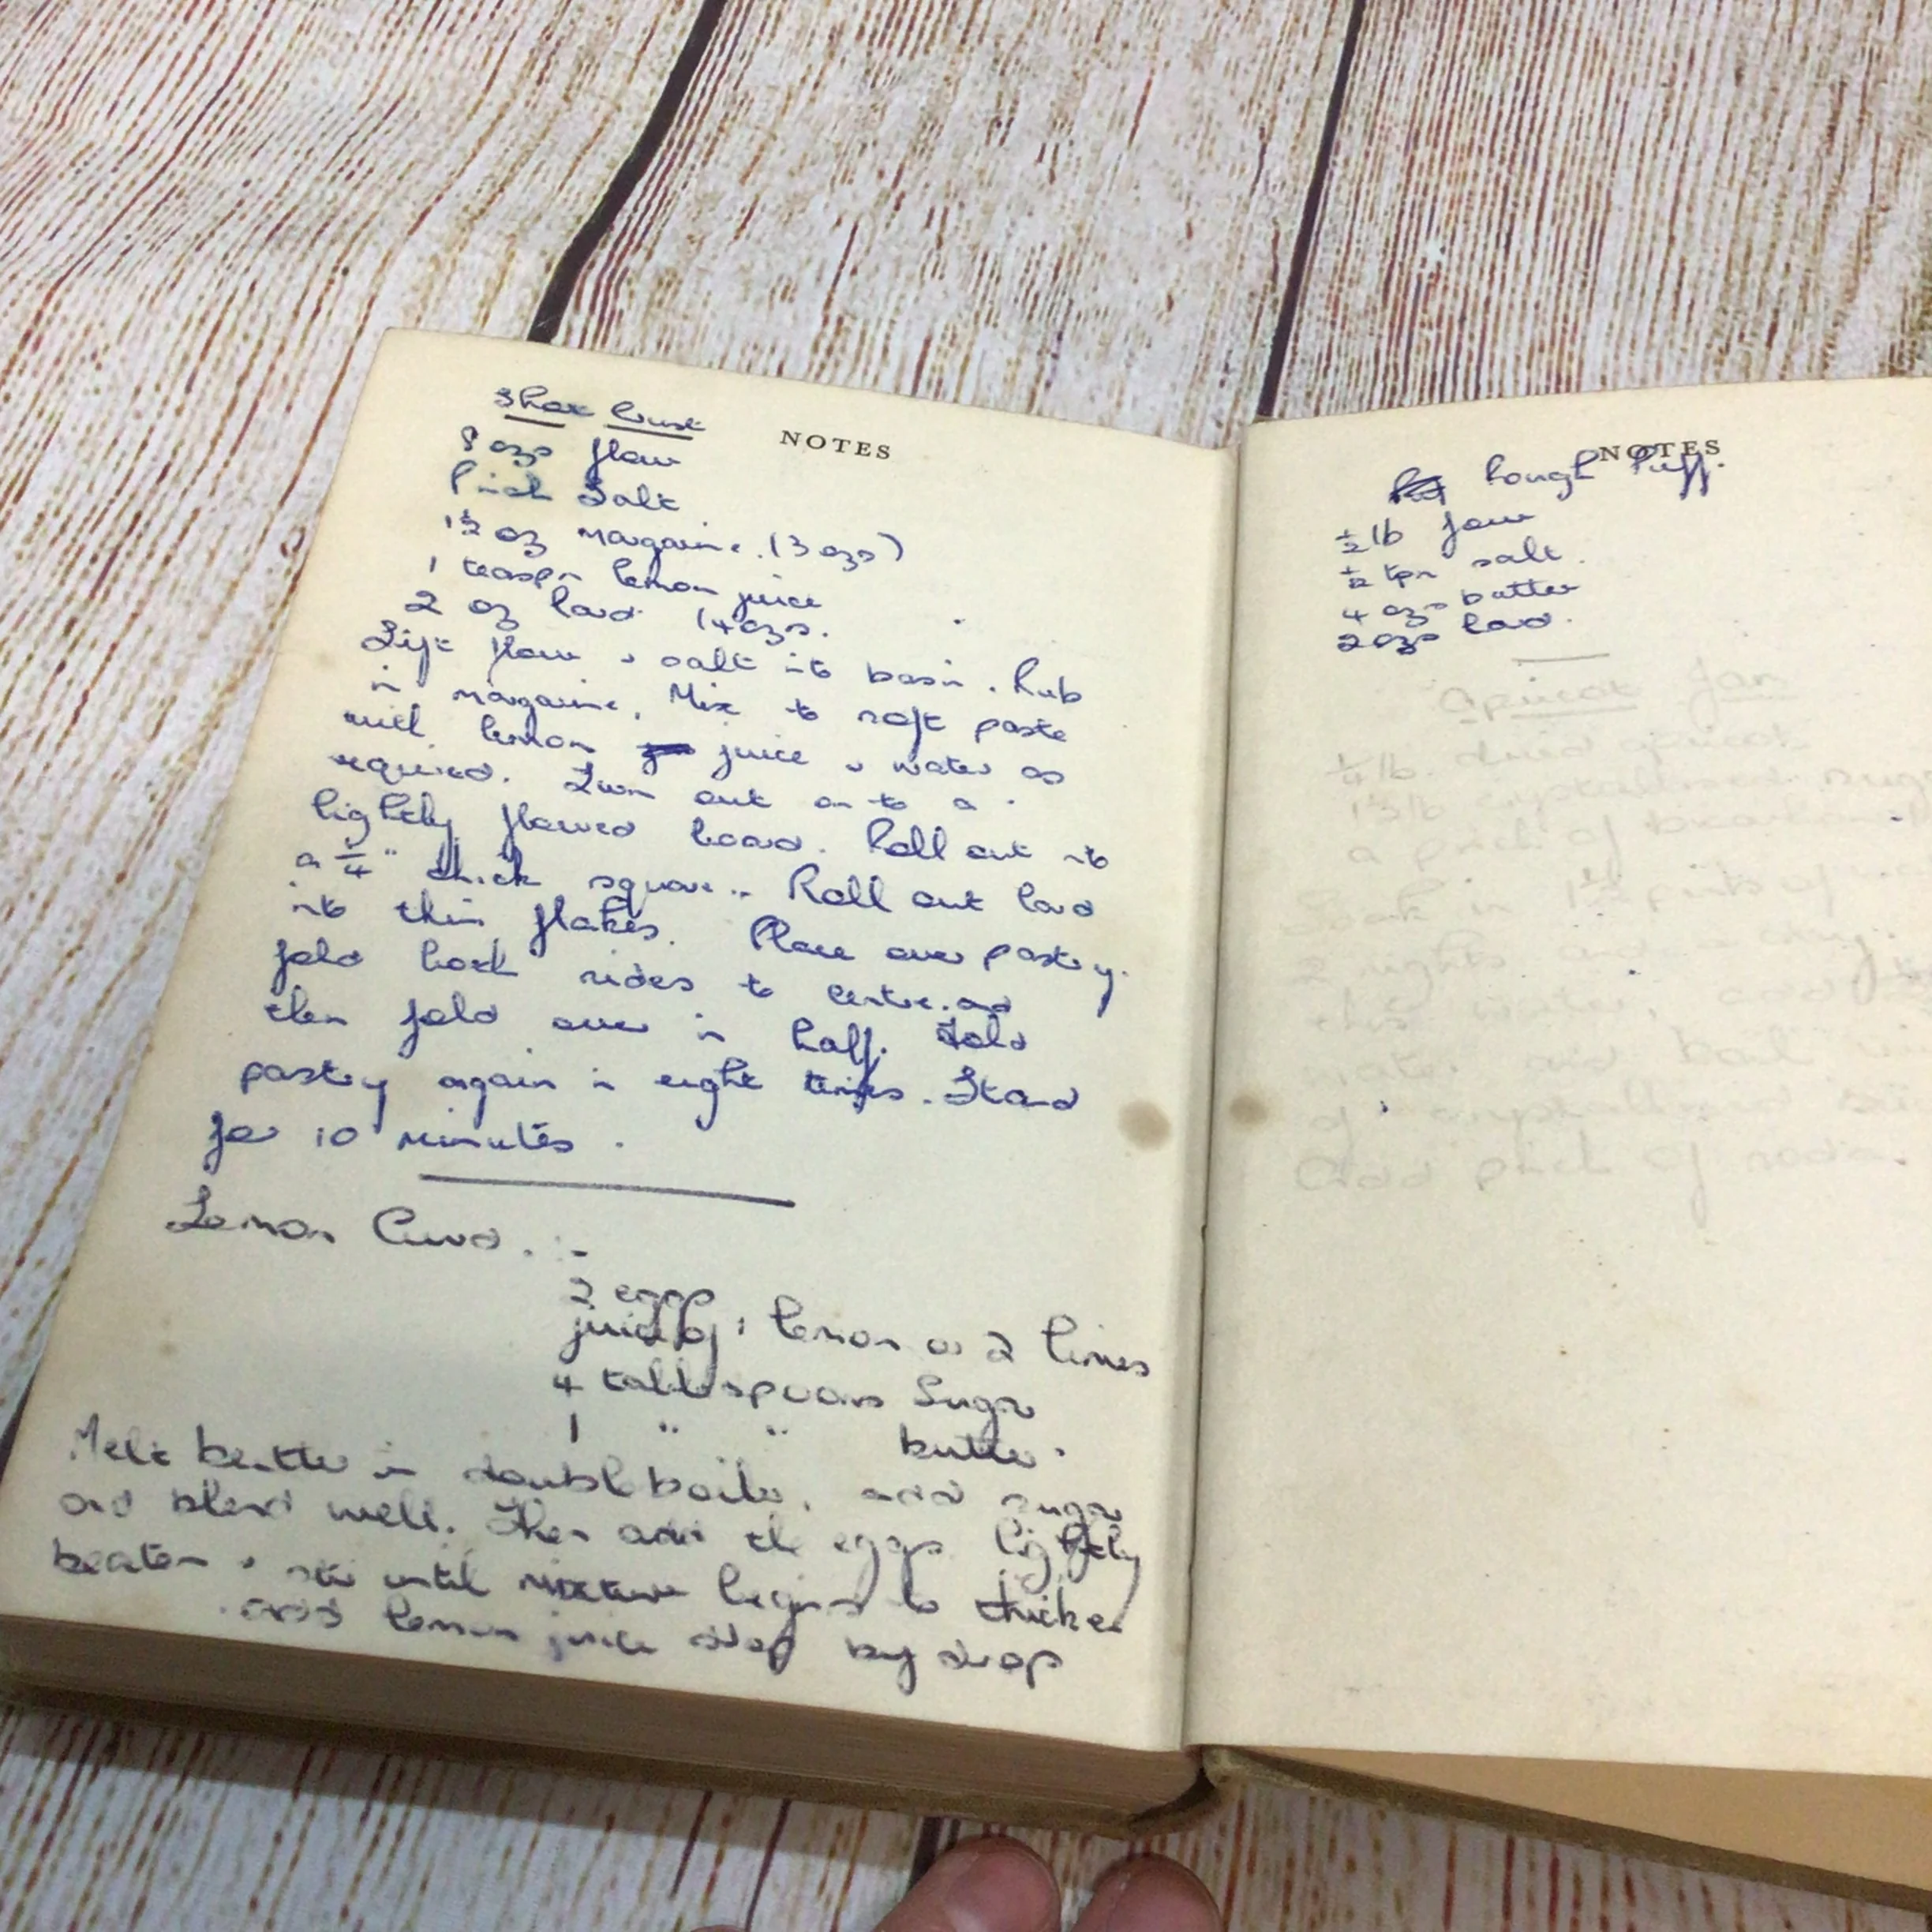 NOTES
Short Crust
8 ozs flour
Pinch Salt
1½ oz margarine. (3 ozs)
1 teaspn lemon juice
2 oz lard (4 ozs.
Sift flour & salt into basin. Rub
in margarine. Mix to soft paste
with lemon juice & water as
required. Turn out on to a
lightly floured board. Roll out into
a ¼" thick square. Roll out lard
into thin flakes. Place over pastry.
fold back sides to centre and
then fold over in half. Fold
pastry again in eight times. Stand
for 10 minutes.
Lemon Curd. :-
2 eggs
juice of 1 lemon or 2 limes
4 tablespoons Sugar
1 " " butter.
Melt butter in double boiler, add sugar
and blend well. Then add the eggs lightly
beaten & stir until mixture begins to thicken
add lemon juice drop by drop
NOTES
Rough Puff.
½ lb flour
½ tpn salt.
4 ozs butter
2 ozs lard.
Apricot Jam
¼ lb. dried apricots
1 lb crystallised sugar
a pinch of
Soak in 1½ pints of
2 nights and a day.
this water, add
water and boil
of crystallised
Add pinch of soda.